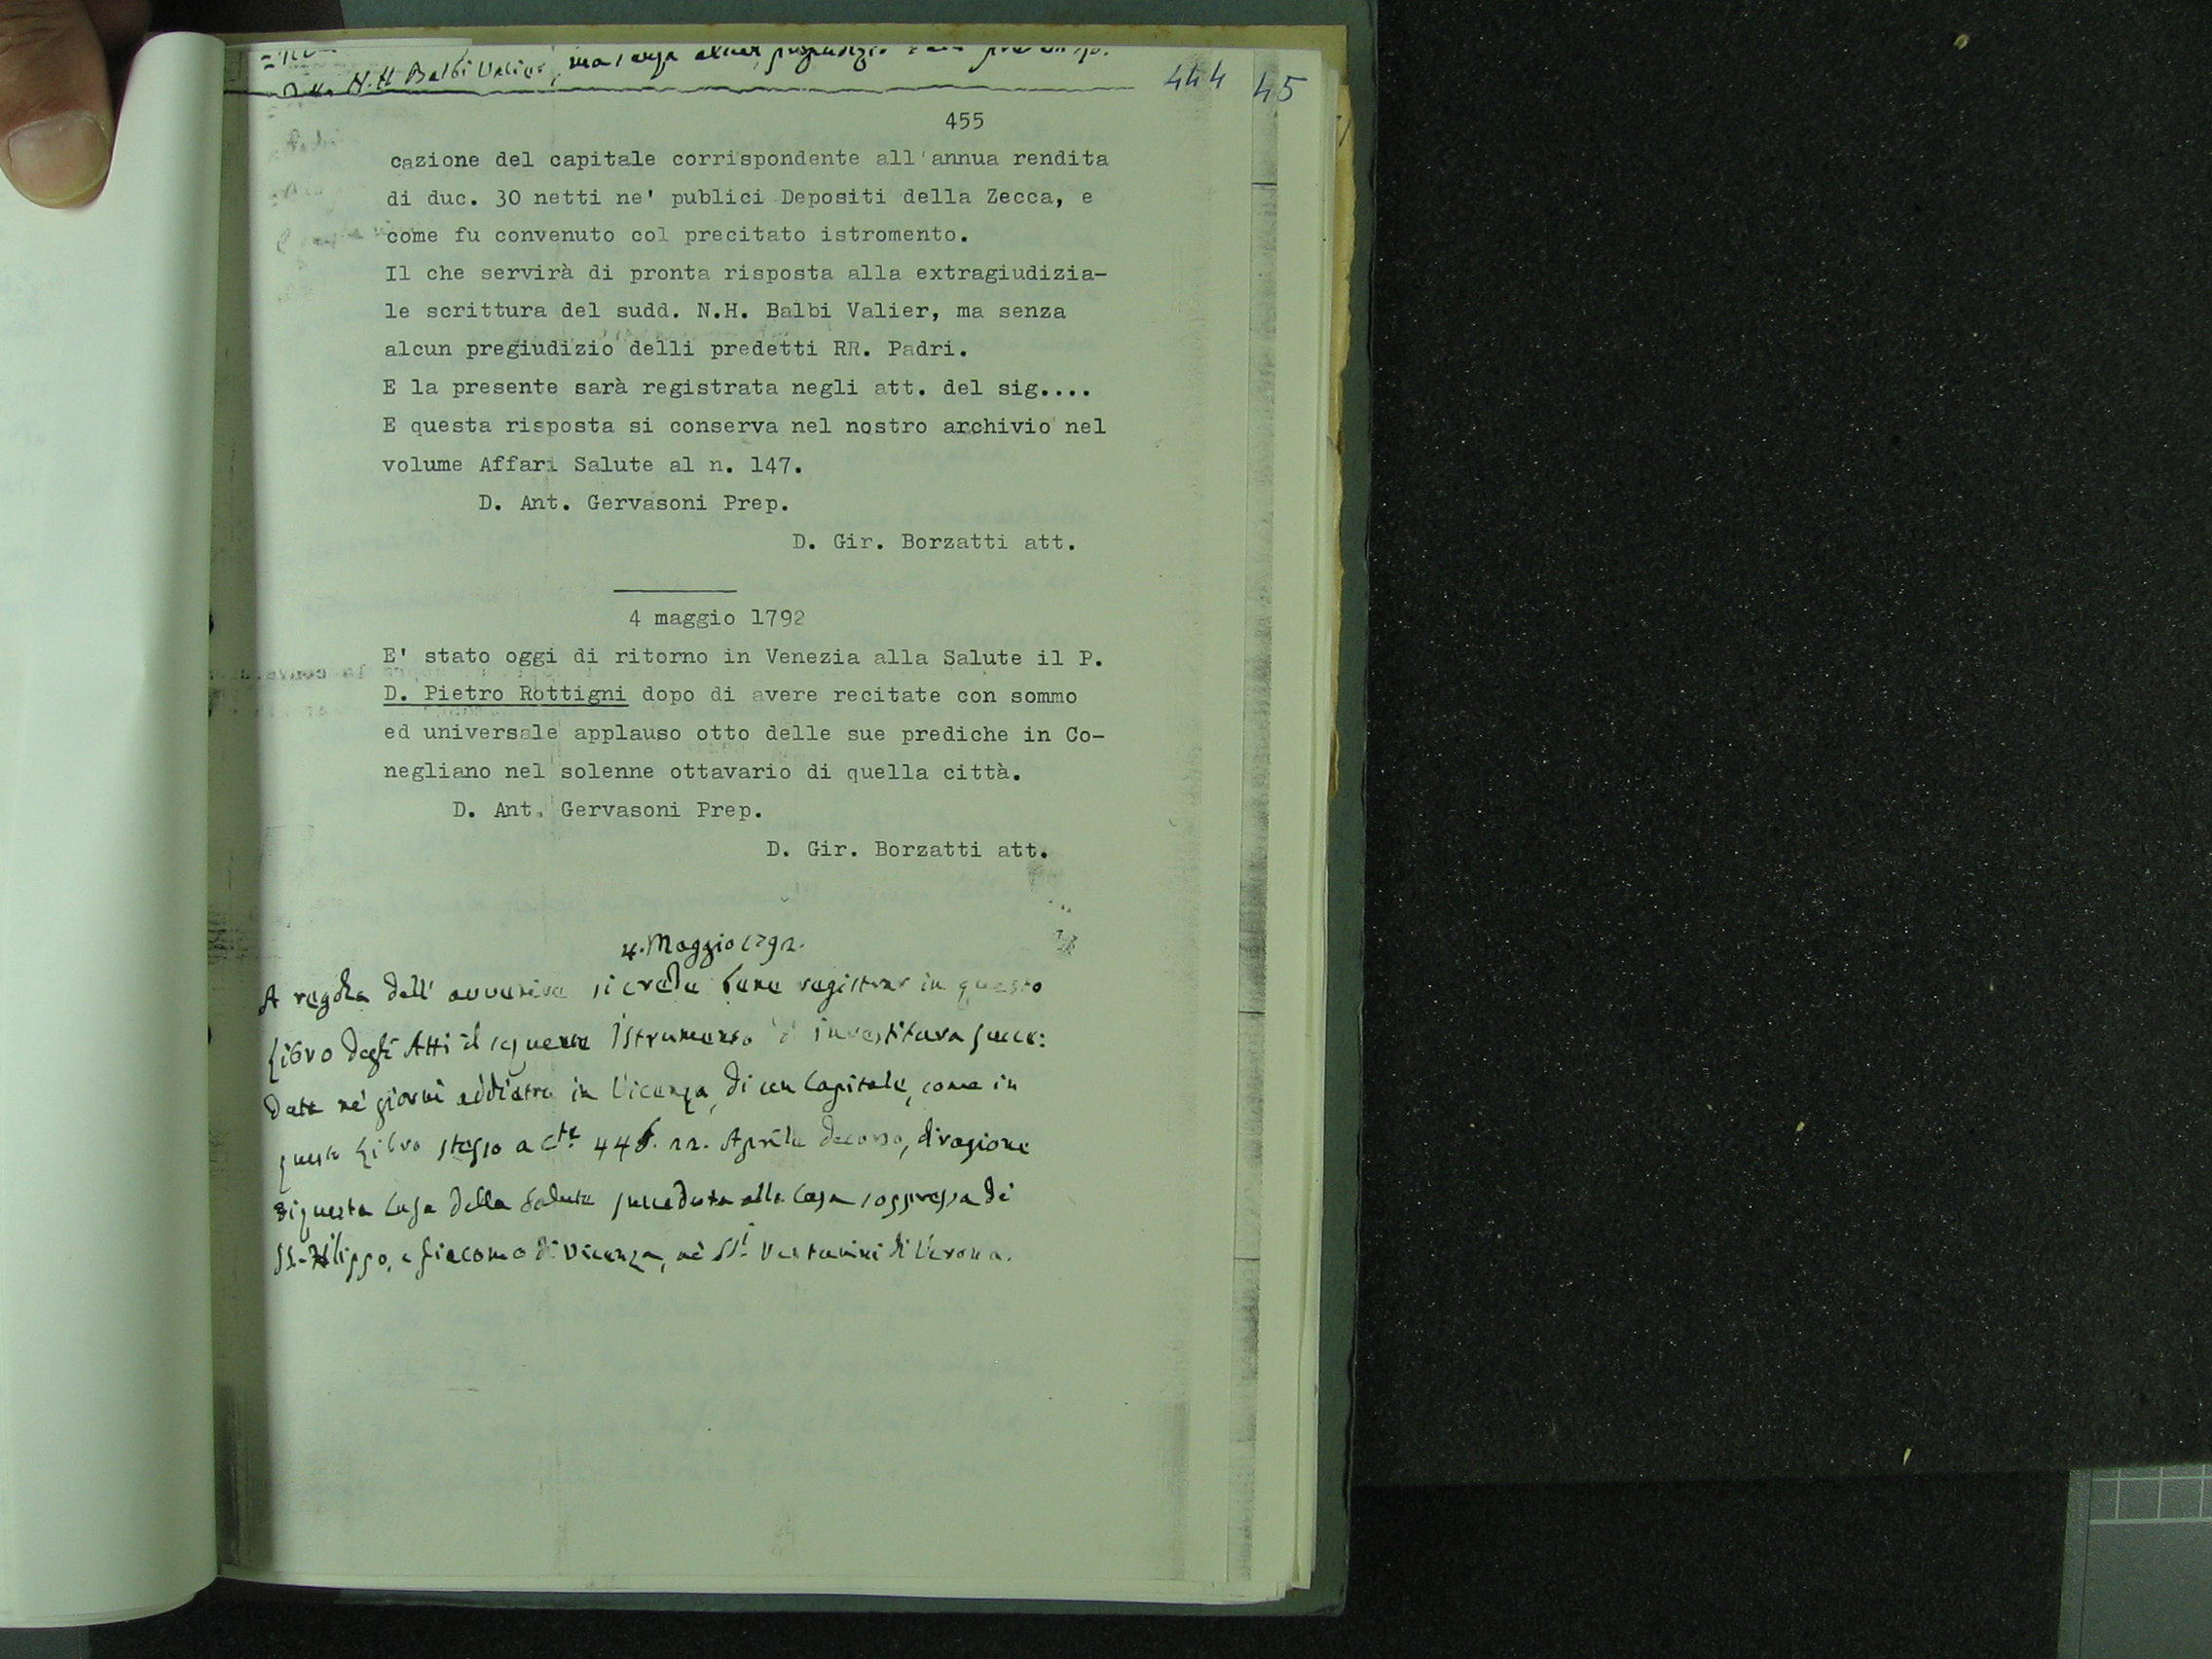 N.H Balbi Valier, ma senza alcun pregiudizio
444 45
455
cazione del capitale corrispondente all'annua rendita
di duc. 30 netti ne' publici Depositi della Zecca, e
come fu convenuto col precitato istromento.
Il che servirà di pronta risposta alla extragiudizia-
le scrittura del sudd. N.H. Balbi Valier, ma senza
alcun pregiudizio delli predetti RR. Padri.
E la presente sarà registrata negli att. del sig....
E questa risposta si conserva nel nostro archivio nel
volume Affari Salute al n. 147.
D. Ant. Gervasoni Prep.
D. Gir. Borzatti att.
4 maggio 1792
E' stato oggi di ritorno in Venezia alla Salute il P.
D. Pietro Rottigni dopo di avere recitate con sommo
ed universale applauso otto delle sue prediche in Co-
negliano nel solenne ottavario di quella città.
D. Ant. Gervasoni Prep.
D. Gir. Borzatti att.
4. Maggio 1792.
A regola dell' avvenire si crede bene registrar in questo
Libro degli Atti il seguente Istrumento d' investitura succe:
duta ne' giorni addietro in Vicenza, di un Capitale, come in
questo Libro stesso a Cte 446. 22. Aprile decorso, di ragione
di questa Casa della Salute succeduta alla Casa soppressa di
SS. Filippo, e Giacomo di Vicenza, ne' SSi Vertarini di Verona.